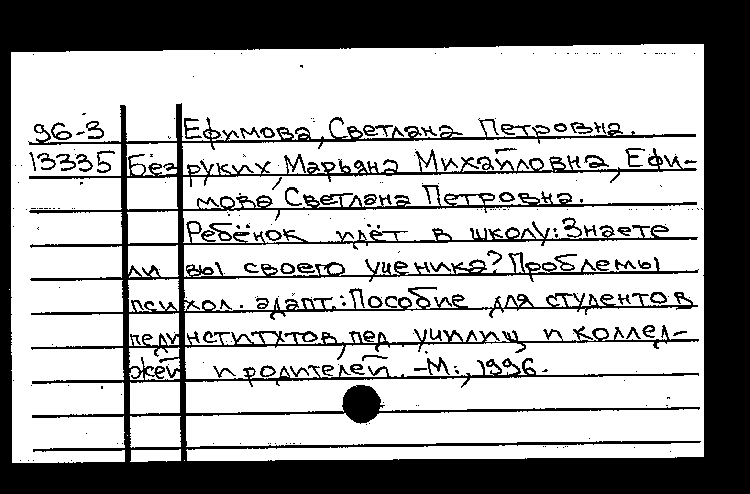 96-3 Ефимова, Светлана Петровна.
13335 Безруких, Марьяна Михайловна, Ефи-
мова, Светлана Петровна.
Ребёнок идёт в школу: Знаете
ли вы своего ученика? Проблемы
психол. адапт.: Пособие для студентов
пединститутов, пед. училищ и коллед-
жей и родителей. -М., 1996.